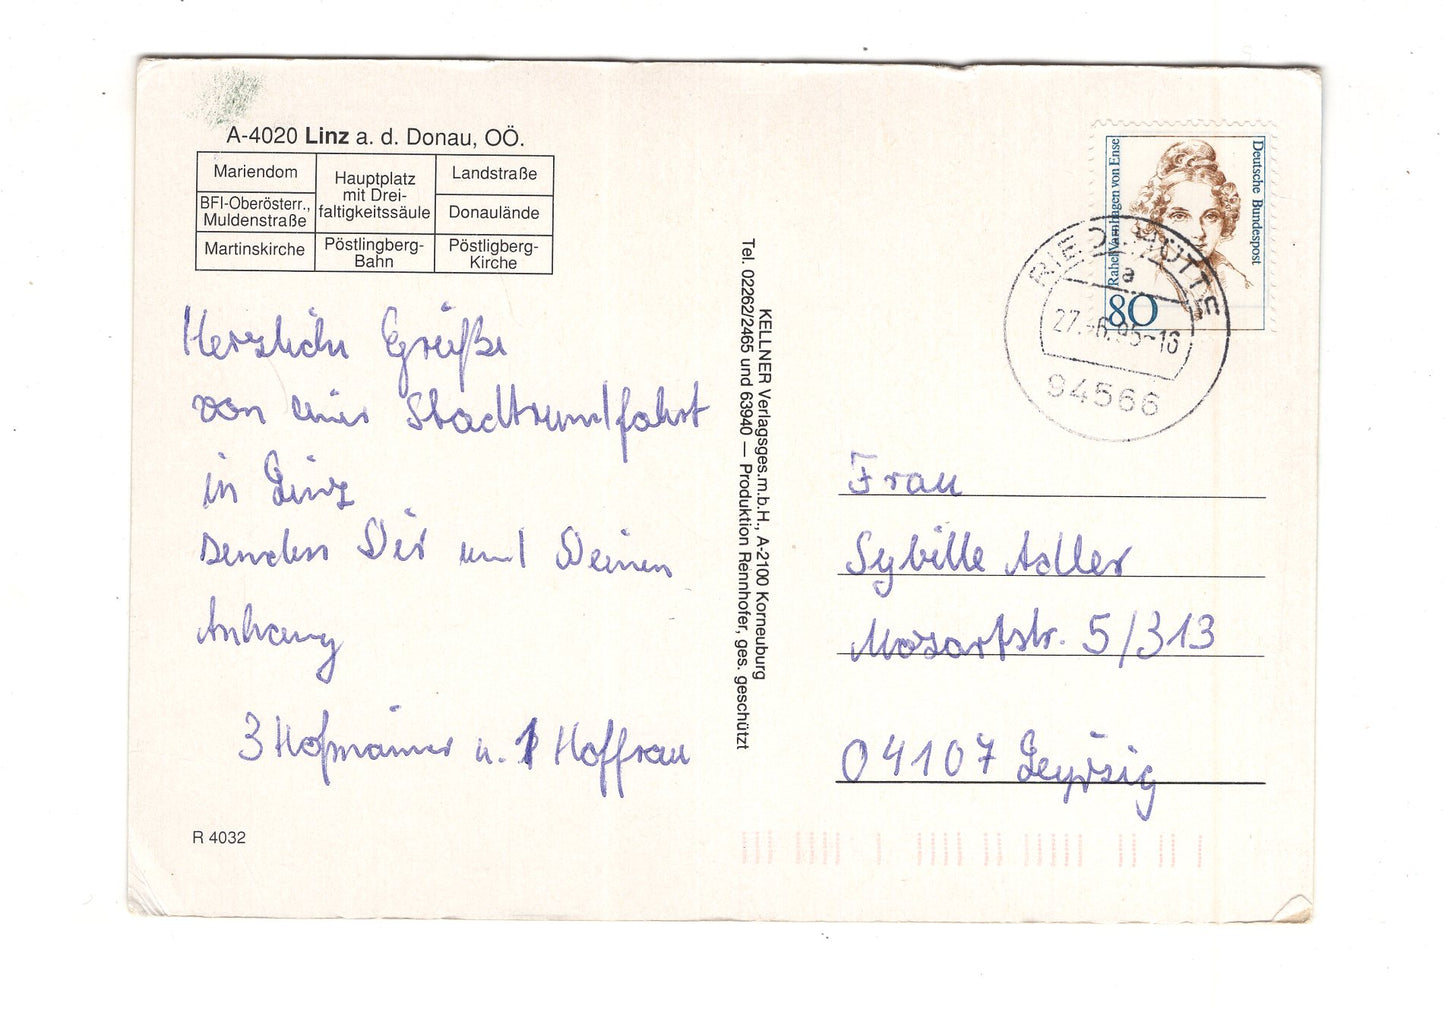 A-4020 Linz a. d. Donau, OÖ.
Mariendom
Hauptplatz
mit Drei-
faltigkeitssäule
Landstraße
BFI-Oberösterr.,
Muldenstraße
Donaulände
Martinskirche
Pöstlingberg-
Bahn
Pöstligberg-
Kirche
Herzliche Grüße
von einer Stadtrundfahrt
in Linz
senden Dir und Deinem
Anhang
3 Hofmänner u. 1 Hoffrau
R 4032
KELLNER Verlagsges.m.b.H., A-2100 Korneuburg
Tel. 02262/2465 und 63940 — Produktion Rennhofer, ges. geschützt
Deutsche Bundespost
Rahel Varnhagen von Ense
80
RIEDLHÜTTE
a
27.-6.95-16
94566
Frau
Sybille Adler
Mozartstr. 5/313
04107 Leipzig